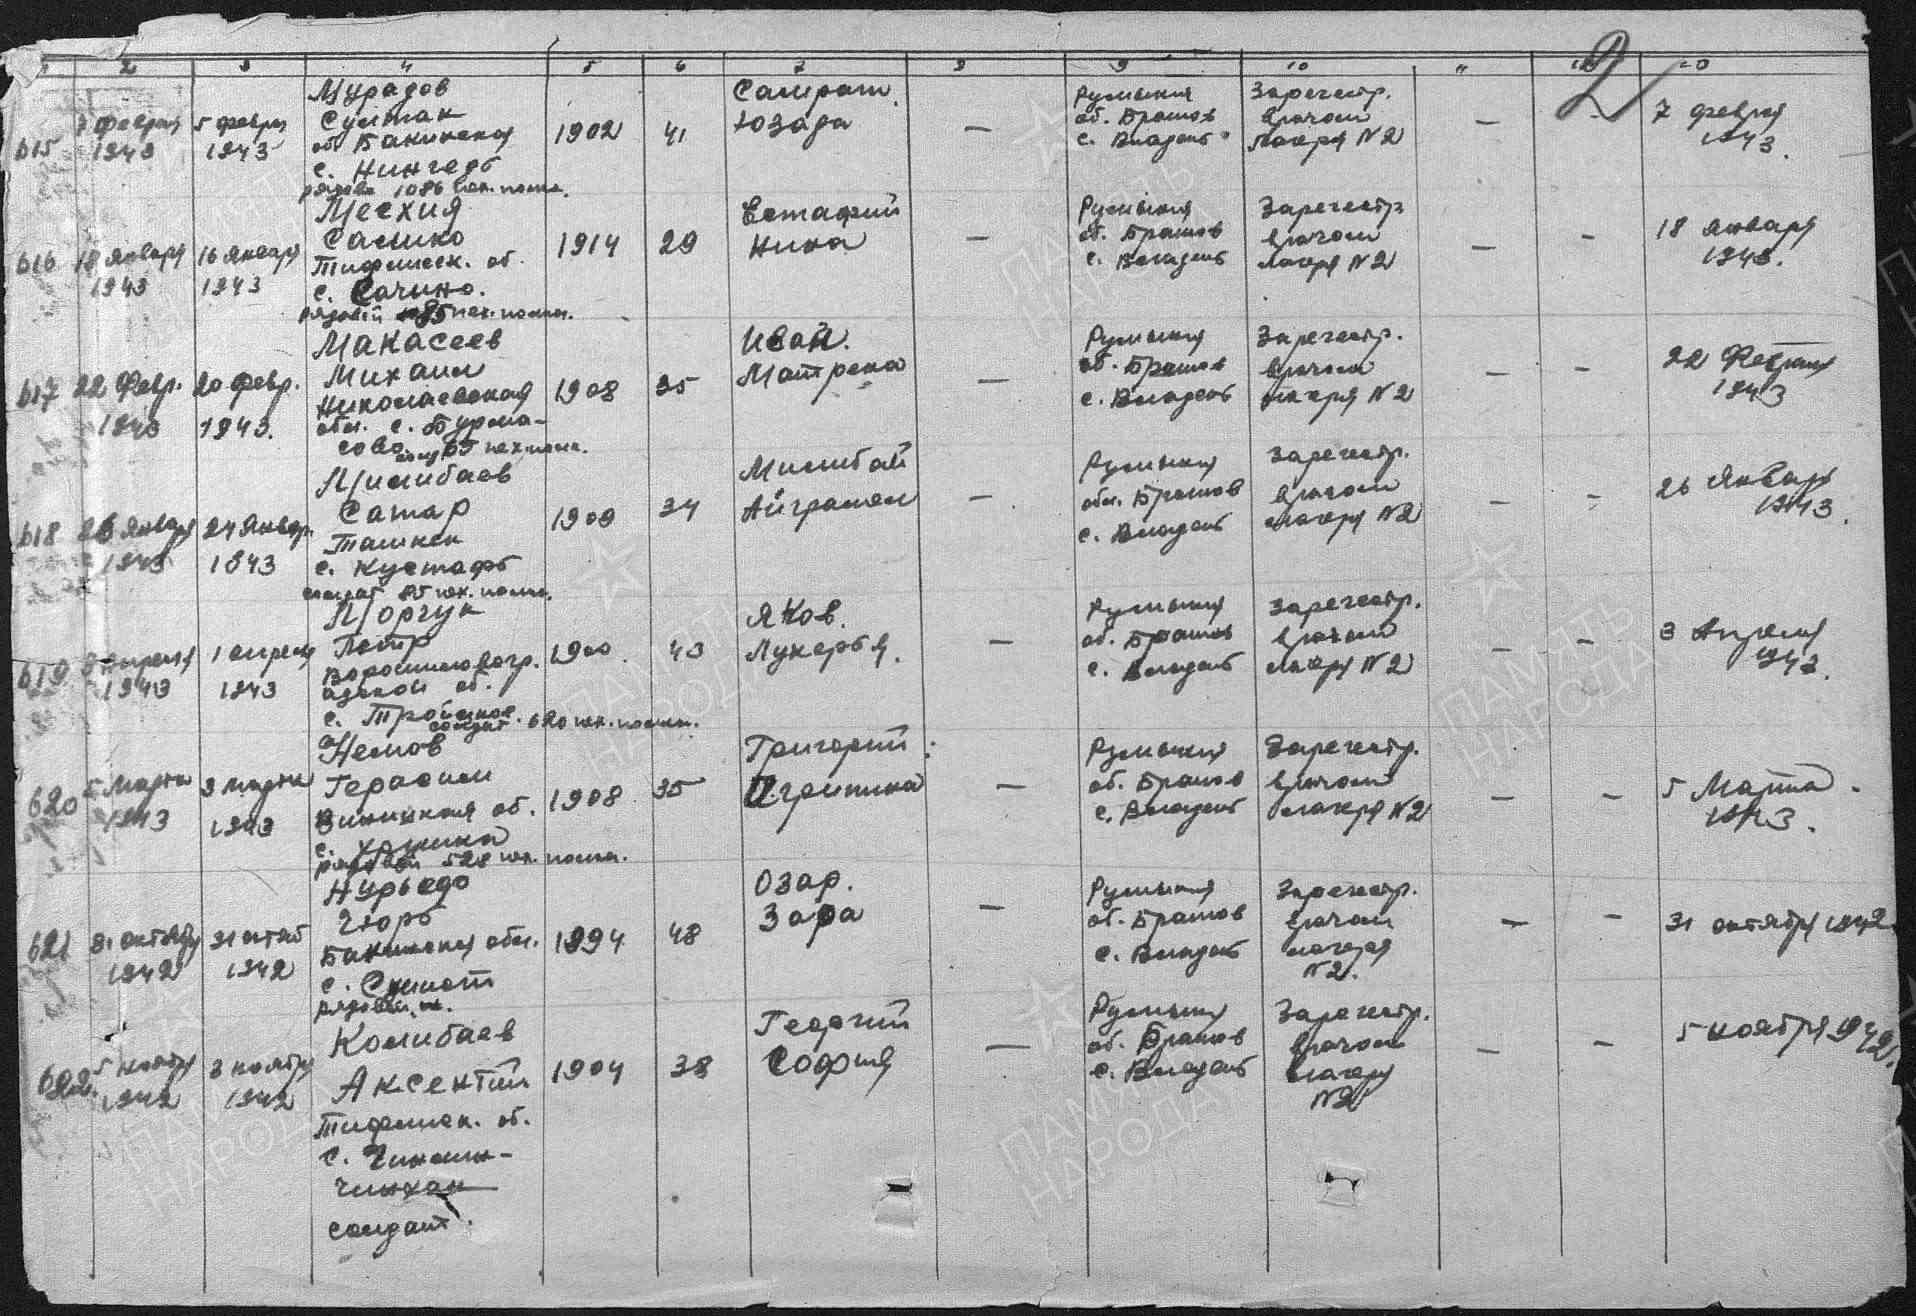 2 3 4 5 6 7 8 9 10 11 12
2
615 7 февраля 1943 5 февраля 1943
Мурадов
Султак
об Бакинская
с. Нингедь
рядов. 1086 пех. полк.
1902 41
Самрат.
Юзада
—
Румыния
об. Брашов
с. Владень
Зарегестр.
врачом
лагеря N2
—
7 февраля
1943.
616 18 января 1943 16 января 1943
Месхия
Самико
Тифлисск. об.
с. Сачино.
рядовой 85 пех. полк.
1914 29
Естафий
Нина
—
Румыния
об. Брашов
с. Владень
Зарегестр
врачом
лагеря N2
— —
18 января
1943.
617 22 февр. 1943 20 февр. 1943.
Макасеев
Михаил
Николаевская
обл. с. Бурма-
сово 65 пех. полк.
1908 35
Иван.
Матрена
—
Румыния
об. Брашов
с. Владень
Зарегестр.
врачом
лагеря N2
— —
22 Февраля
1943
618 26 января 1943 24 январ. 1943
Мимибаев
Сатар
Ташкен
с. Кустафь
солдат 85 пех. полк.
1909 34
Мимбай
Айграмал
—
Румыния
обл. Брашов
с. Владень
Зарегестр.
врачом
лагеря N2
— —
26 Январь
1943.
619 3 апреля 1943 1 апреля 1943
Моргук
Петр
Ворошиловогр.
адской об.
с. Тройцкое.
солдат 620 пех. полк.
1900 43
Яков.
Лукерья.
—
Румыния
об. Брашов
с. Владень
Зарегестр.
врачом
лагеря N2
— —
3 Апреля
1943.
620 5 марта 1943 3 марта 1943
Немов
Герасим
Виницкая об.
рядовой 528 пех. полк.
1908 35
Григорий
Агрипина
—
Румыния
об. Брашов
с. Владень
Зарегестр.
врачом
лагеря N2
— —
5 Марта
1943.
621 31 октября 1942 31 октяб 1942
Нурьедо
Бакинская обл.
рядовой
1894 48
Озар.
Зара
—
Румыния
об. Брашов
с. Владень
Зарегестр.
врачом
лагеря
N2.
— —
31 октября 1942.
622. 5 ноября 1942 3 ноября 1942
Колибаев
Аксентий
Тифлиск. об.
солдат.
1904 38
Георгий
София
—
Румыния
об. Брашов
с. Владень
Зарегестр.
врачом
лагеря
N2
— —
5 ноября 1942.
ПАМЯТЬ
НАРОДА